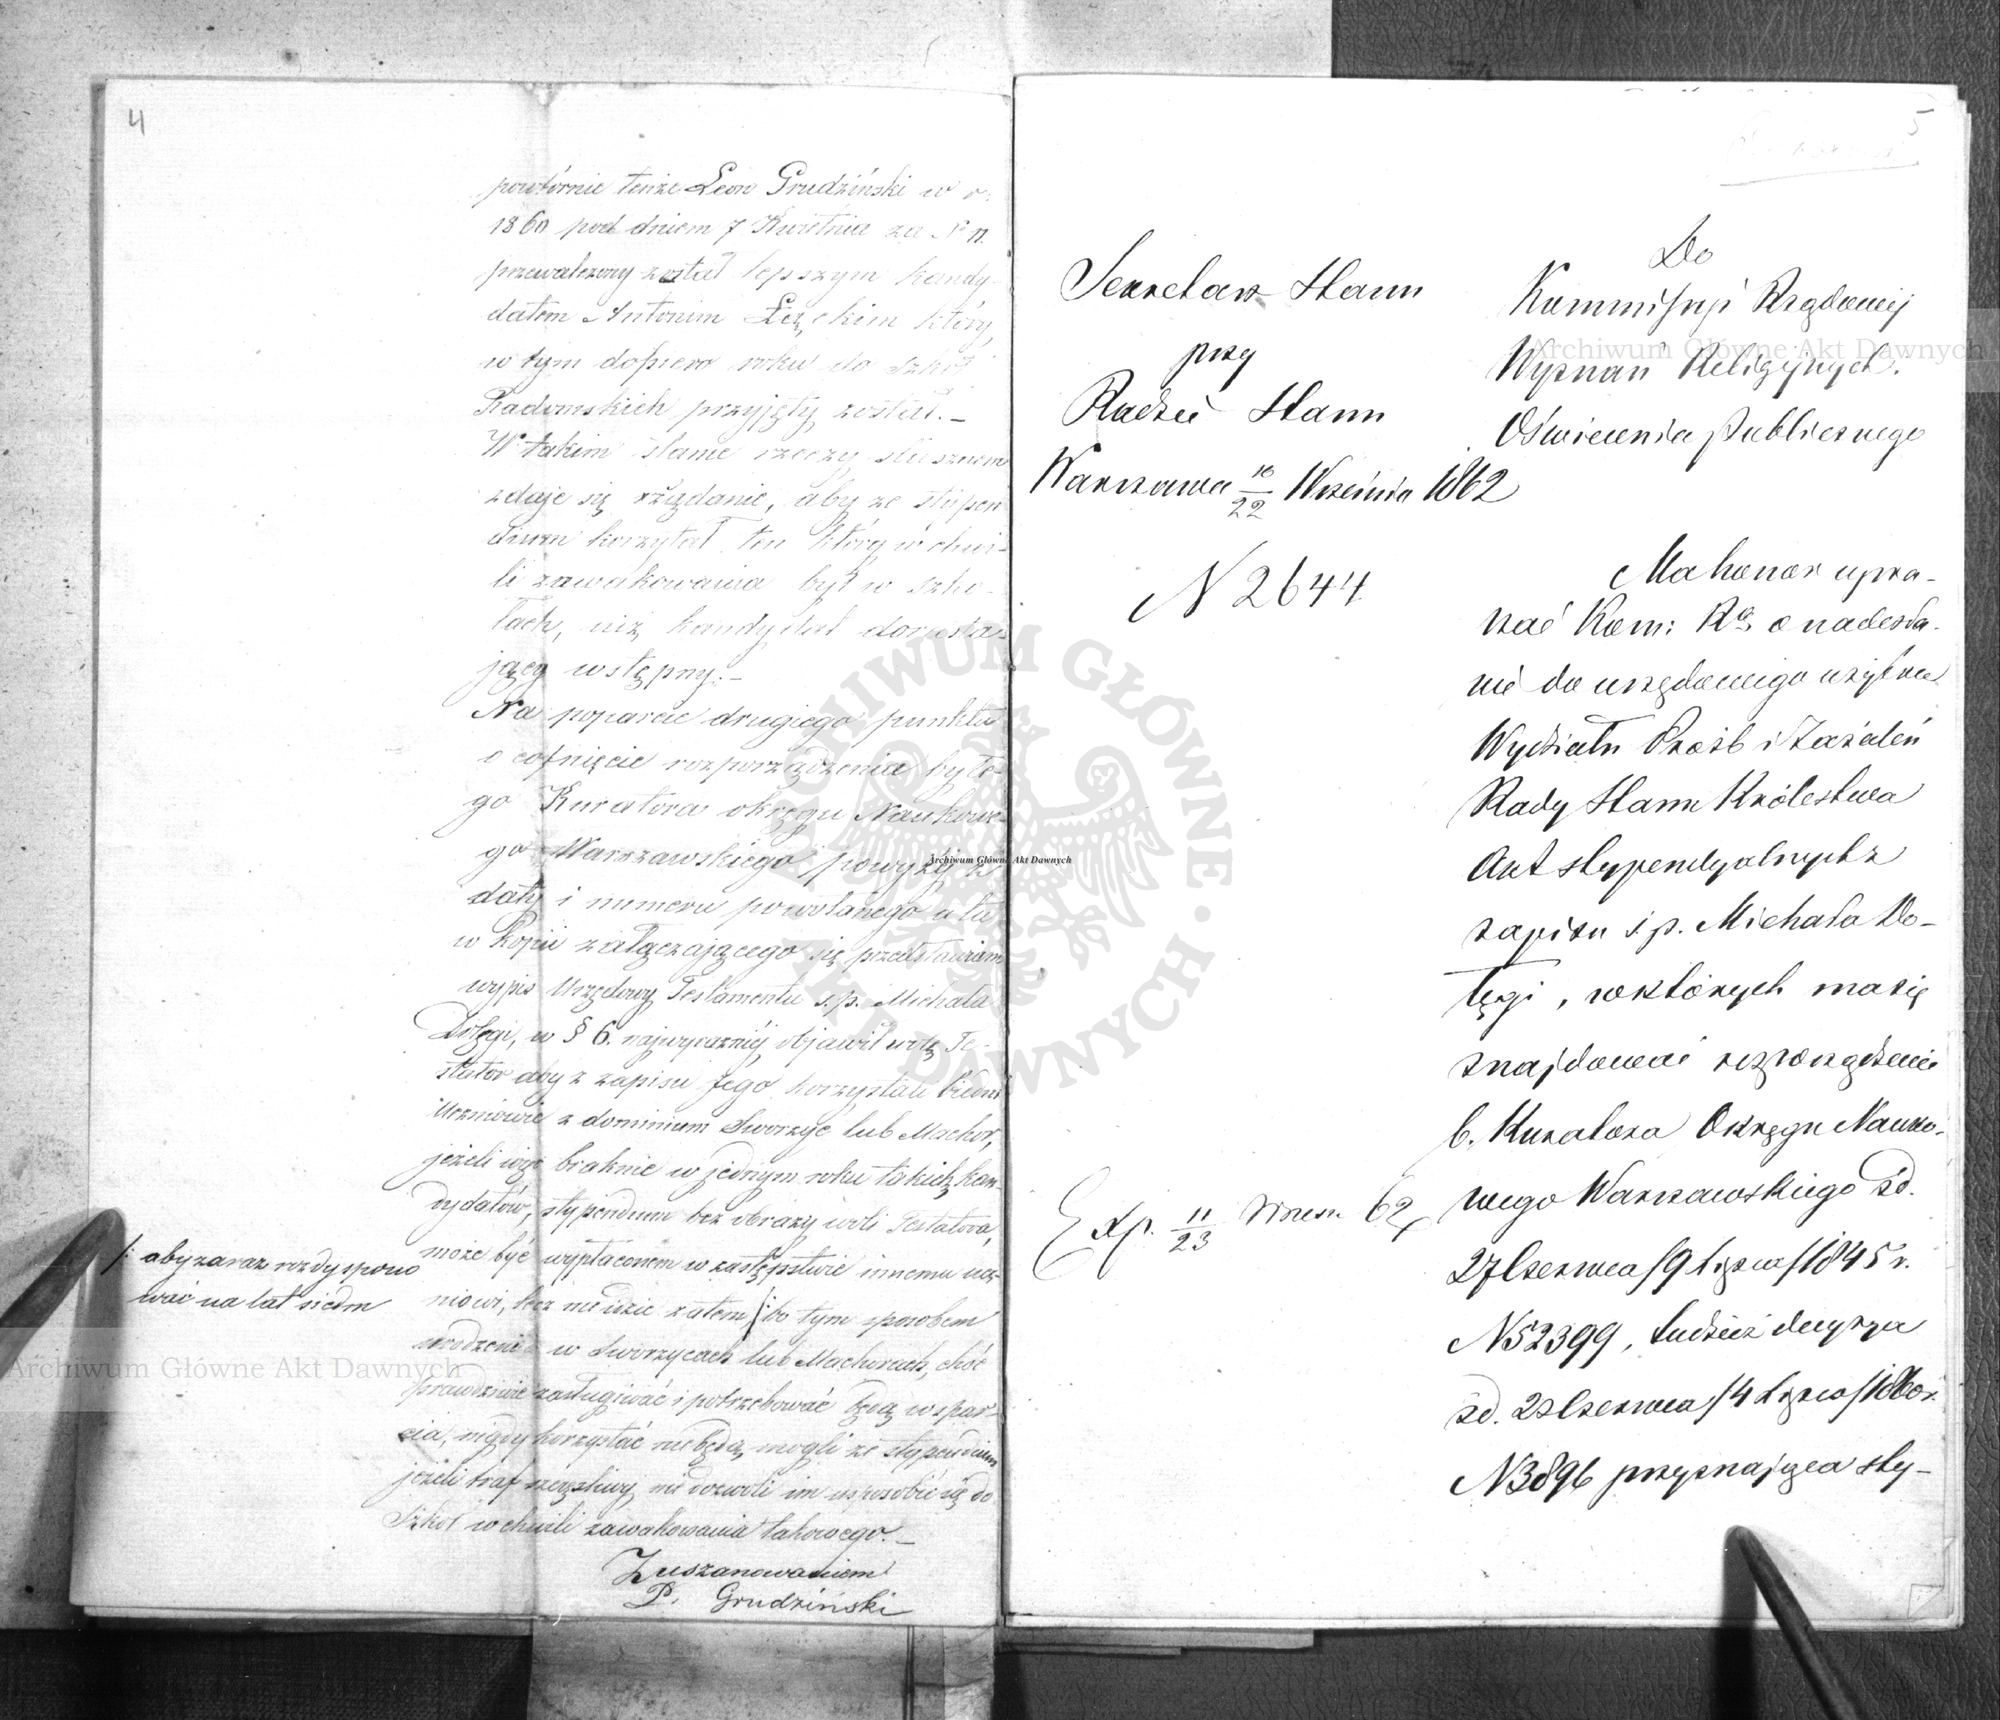 4
powtórnie tenże Leon Grudziński w r:
1860 pod dniem 7 Kwietnia za N 11.
przewalczony został lepszym kandy-
datem Antonim Łęckim który,
w tym dopiero roku do szkół
Radomskich przyjęty został. _
W takim stanie rzeczy słusznem
zdaje się rządanie, aby ze stypen
dium korzytał ten który w chwi-
li zawakowania był w szko-
łach, niż kandydat dorasta-
jący wstępny. _
Na poparcie drugiego punktu
o cofnięcie rozporządzenia byłe-
go Kuratora okręgu Naukowe-
go Warszawskiego powyżéj z
daty i numeru powołanego a tu
w kopii załączającego się przedstawiam
wypis Urzędowy Testamentu s.p. Michała
Dołęgi, w § 6. najwyraźniéj objawił wolę Te-
stator aby z zapisu Jego korzystali biedni
Uczniowie z dominium Sworzyc lub Machor,
jeżeli więc braknie w jednym roku takich kan-
dydatów, stypendium bez obrazy woli Testatora,
może być wypłaconem w zastępstwie innemu ucz-
niowi, lecz nie idzie zatem /: bo tym sposobem
urodzeni w Sworzycach lub Machorach, choć
prawdziwie zasługiwać i potrzebować będą wspar-
cia, nigdy korzystać nie będą mogli ze stypendium
jeżeli traf szczęśliwy nie dozwoli im usposobić się do
Szkół w chwili zawakowania takowego. _
Z uszanowaniem
P. Grudziński
/: aby zaraz rozdyspono
wać na lat siedm
5
Sekretarz Stanu
przy
Radzie Stanu
Warszawa 10/22 Września 1862
N 2644
Exp. 11/23 Wrześ. 62
Do
Kommissyi Rządowej
Wyznań Religijnych i
Oświecenia Publicznego
Ma honor upra-
szać Kom: Rą o nadesła-
nie do urzędowego użytku
Wydziału Próśb i Zażaleń
Rady Stanu Królestwa
Akt stypendyalnych z
zapisu ś.p. Michała Do-
łęgi, w których ma się
znajdować rozporządzenie
b. Kuratora Okręgu Nauko-
wego Warszawskiego zd.
27 Czerwca /9 Lipca/ 1845 r.
N 52399, tudzież decyzya
zd. 22 Czerwca /4 Lipca/ 1860 r.
N 3896 przyznająca sty-
Archiwum Główne Akt Dawnych
Archiwum Główne Akt Dawnych
Archiwum Główne Akt Dawnych
ARCHIWUM GŁÓWNE · AKT DAWNYCH ·